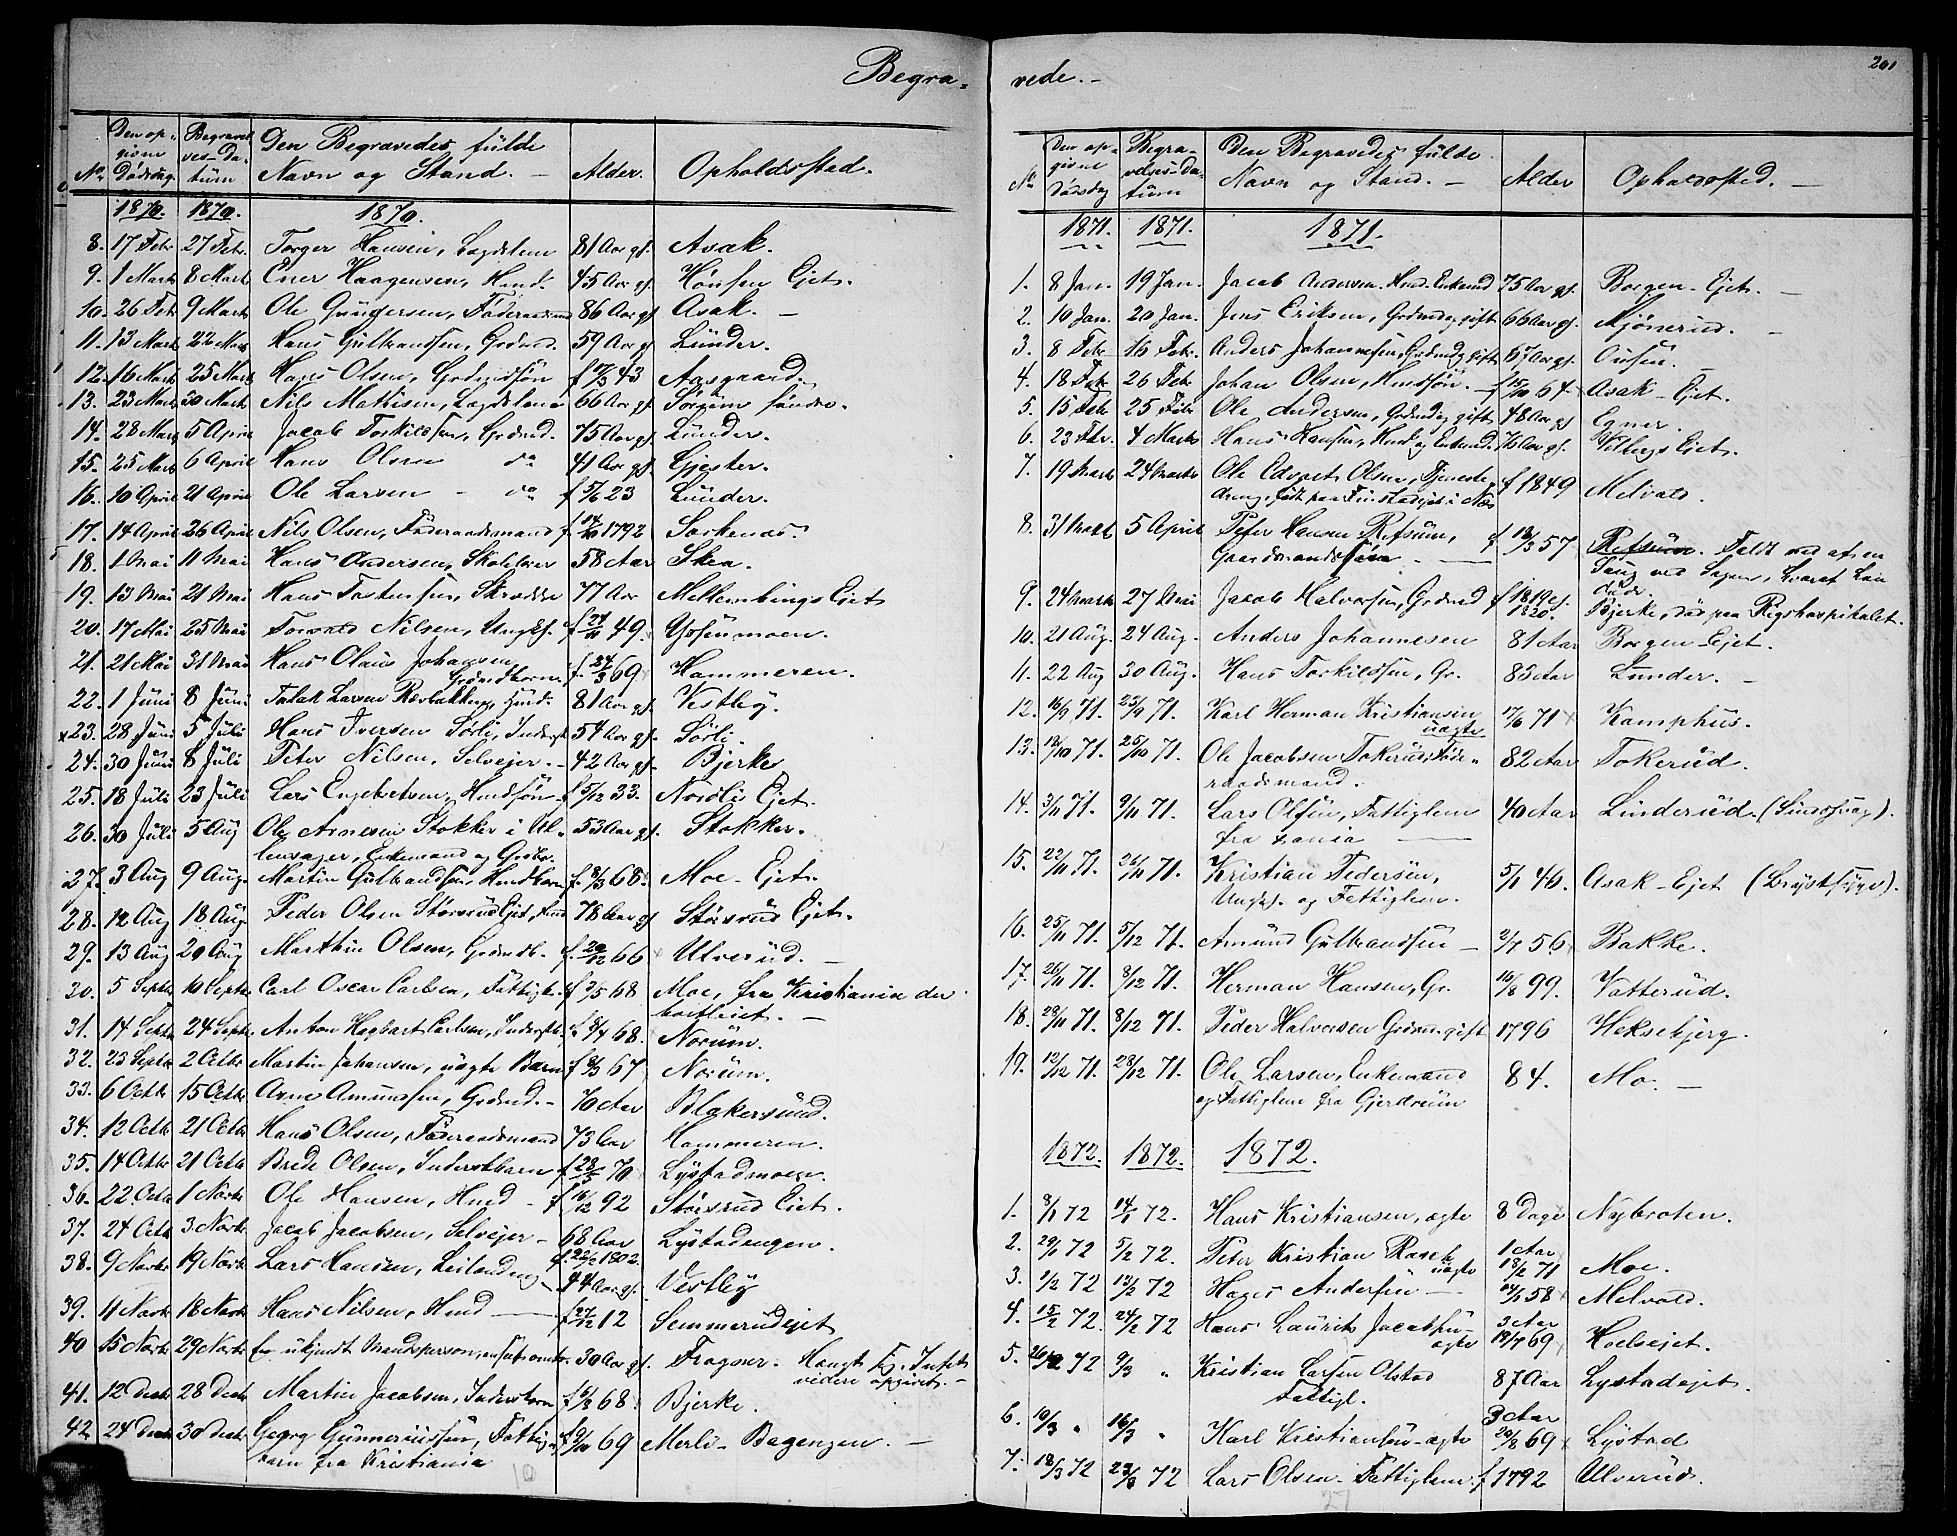 Begra-
Den op-
givne
Dødsdag.
Begravel
ses-Da-
tum
No
Den Begravedes fulde
Navn og Stand. -
Alder.
Opholdsstad.
1870. 1870. 1870.
8. 17 Febr 27 Febr. Torger Hansen, Lægdslem 81 Aar gl. Asak.
9. 1 Marts 8 Marts Ener Haagensen, Hmd. 45 Aar gl. Hønsen Ejet.
10. 26 Febr 9 Marts Ole Gundersen, Föderaadsmand 86 Aar gl Asak. -
11. 13 Marts 22 Marts Hans Gulbrandsen, Grdmd. 59 Aar gl Lunder.
12. 16 Marts 25 Marts Hans Olsen, Grdmdsön f 43 Aasgaard.
13. 23 Marts 30 Marts Nils Mathisen, Lægdslem 66 Aar gl. Sörgim söndre.
14. 28 Marts 5 April Jacob Torkildsen, Grdmd. 75 Aar gl. Lunder.
15. 25 Marts 6 April Hans Olsen do 41 Aar gl. Gjester.
16. 10 April 21 April Ole Larsen - do f 5/6 23 Lunder.
17. 14 April 26 April Nils Olsen, Föderaadsmand f 1792
18. 1 Mai 11 Mai Hans Andersen, Skolelærer 58 Aar Skea.
19. 13 Mai 21 Mai Hans Tostensen, Skrædder 77 Aar Mellembings Ejet
20. 17 Mai 25 Mai Torvald Nilsen, Ungkl. f 49.
21. 21 Mai 31 Mai Hans Olaus Johansen,
Grdmdbarn f. 24/3 69 Hammeren.
22. 1 Juni 8 Juni Larsen Hmd. 81 Aar gl. Vestby.
x23. 28 Juni 5 Juli Hans Iversen Sörli, Inderst 54 Aar gl. Sörli.
24. 30 Juni 8 Juli Peter Nilsen, Selvejer. - 42 Aar gl. Bjerke
25. 18 Juli 23 Juli Lars Engebretsen, Hmdsön - f 5/12 33. Nordli Ejet.
26. 30 Juli 5 Aug Ole Arnesen Stokker i Ul-
lensager, Enkemand og Grdbr. 53 Aar gl. Stokker.
27. 3 Aug 9 Aug. Martin Gulbrandsen, Hmdbarn f. 8/3 68. Moe - Ejet.
28. 12 Aug 18 Aug Peder Olsen Störsrud Ejet, Hmd 78 Aar gl Störsrud Ejet.
29. 13 Aug 20 Aug Marthin Olsen, Grdmdb. f. 20/12 66 Ulverud. -
30. 5 Septbr 10 Septbr Carl Oscar Carlsen, Fattigbr. f 2/5 68 Moe, fra Kristiania der
bortleiet. -
31. 14 Septbr 24 Septbr Anton Hagbart Carlsen, Inderstb. f. 8/4 68. Norum.
32. 23 Septbr 2 Octbr Martin Johansen, uægte Barn f 8/3 67 Norum.
33. 6 Octbr 15 Octbr Arne Amundsen, Grdmd. - 70 Aar Blakersund.
34. 12 Octb 21 Octb Hans Olsen, Föderaadsmand 73 Aar Hammeren.
35. 14 Octbr 21 Octb Brede Olsen, Inderstbarn f 28/3 70 Lystadmoen.
36. 22 Octbr 1 Novbr Ole Hansen, Hmd - f 16/12 92 Störsrud Ejet.
37. 24 Octb 3. Novbr. Jacob Jacobsen, Selvejer - 68 Aar Lystadengen.
38. 9 Novbr 19 Novbr Lars Hansen, Leilænding - f. 22/2 1802.
44 Aar gl. Vestby
39. 11 Novbr 18 Novbr Hans Nilsen, Hmd - f 27/12 12 Semmerudejet
40 15 Novbr 29 Novbr En ukjendt Mandsperson, 30 Aar gl. Frogner. Hængt sig. Intet
videre opgivet. -
41. 12 Decbr 28 Decbr Martin Jacobsen, Inderstbarn f 6/3 68 Bjerke.
42 24 Decbr 30 Decbr Georg Gunneriussen, Fattig-
barn fra Kristiania f 9/10 69 Merli - Bagengen. -
vede. -
201
No
Den op-
givne
Dødsdag
Begra-
velses-Da-
tum
Den Begravedes fulde
Navn og Stand. -
Alder
Opholdssted. -
1871. 1871. 1871.
1. 8 Jan. 19 Jan. Jacob Andersen, Hmd. Enkemd 75 Aar gl. Borgen - Ejet. -
2. 10 Jan. 20 Jan. Jens Eriksen, Grdmd og gift 66 Aar gl. Mjönerud. -
3. 8 Febr 16 Febr. Anders Johannesen, Grdmd og gift 67 Aar gl. Ousen.
4. 18 Febr 26 Febr Johan Olsen, Hmdsön. - f 15/10 64 Asak - Ejet.
5. 15 Febr 25 Febr Ole Andersen, Grdmd og gift 48 Aar gl Egner.
6. 23 Febr. 4 Marts Hans Hansen, Hmd og Enkemd. 76 Aar gl. Vilbergs Ejet.
7. 19 Marts 24 Marts Ole Edvart Olsen, Tjeneste-
dreng, födt paa i Næs f 1849 Melvold.
8. 31 Marts 5 April Peter Hansen Refsum,
Gaardmandssön - f 18/3 57 Refsum. Faldt ned af en
Saug ved Sagen, hvoraf han
døde.
9. 24 Marts 27 Mai Jacob Halvorsen, Grdmd f 1819 el.
1820. Bjerke, död paa Rigshospitalet.
10. 21 Aug. 24 Aug. Anders Johannesen 81 Aar Borgen - Ejet.
11. 22 Aug 30 Aug. Hans Torkildsen, Gr. 85 Aar Lunder. -
12. 16/9 71. 23/9 71. Karl Herman Kristiansen
uægte 17/6 71 Kamphus.
13. 18/10 71. 25/10 71. Ole Jacobsen Tokerud, Föde-
raadsmand. 82 Aar Tokerud.
14. 3/11 71. 9/11 71. Lars Olsen, Fattiglem
fra 40 Aar Linderud. (Sindssvag).
15. 22/11 71. 26/11 71. Kristian Pedersen,
Ungkl. og Fattiglem. 5/1 46. Asak - Ejet (Brystsyge).
16. 25/11 71. 5/12 71. Amund Gulbrandsen - 2/7 56 Bakke.
17. 26/11 71. 8/12 71. Herman Hansen, Gr. 16/8 99. Vatterud.
18. 28/11 71. 8/12 71. Peder Halvorsen Grdm. gift 1796 Heksebjerg.
19. 12/12 71. 28/12 71. Ole Larsen, Enkemand
og Fattiglem fra Gjerdrum 84. Mo. -
1872. 1872. 1872.
1. 8/1 72 14/1 72. Hans Kristiansen, ægte 8 Dage Nybroten.
2. 29/1 72 5/2 72. Peter Kristian Rasch
uægte 1 Aar
18/2 71 Moe.
3. 1/2 72 13/2 72 Hans Andersen - 58 Melvold.
4. 15/2 72. 24/2 72 Hans Laurits Jacobsen
ægte 3 Aar
19/7 69 Hoelsejet.
5. 26/2 72 9/3 " Kristian Larsen Olstad
Fattigl. 87 Aar Lystadejet.
6. 10/3 " 16/3 " Karl Kristiansen - ægte 3 Aar
20/8 69 Lystad
7. 18/3 72 23/3 72 Lars Olsen - Fattiglem f 1792 Ulverud.